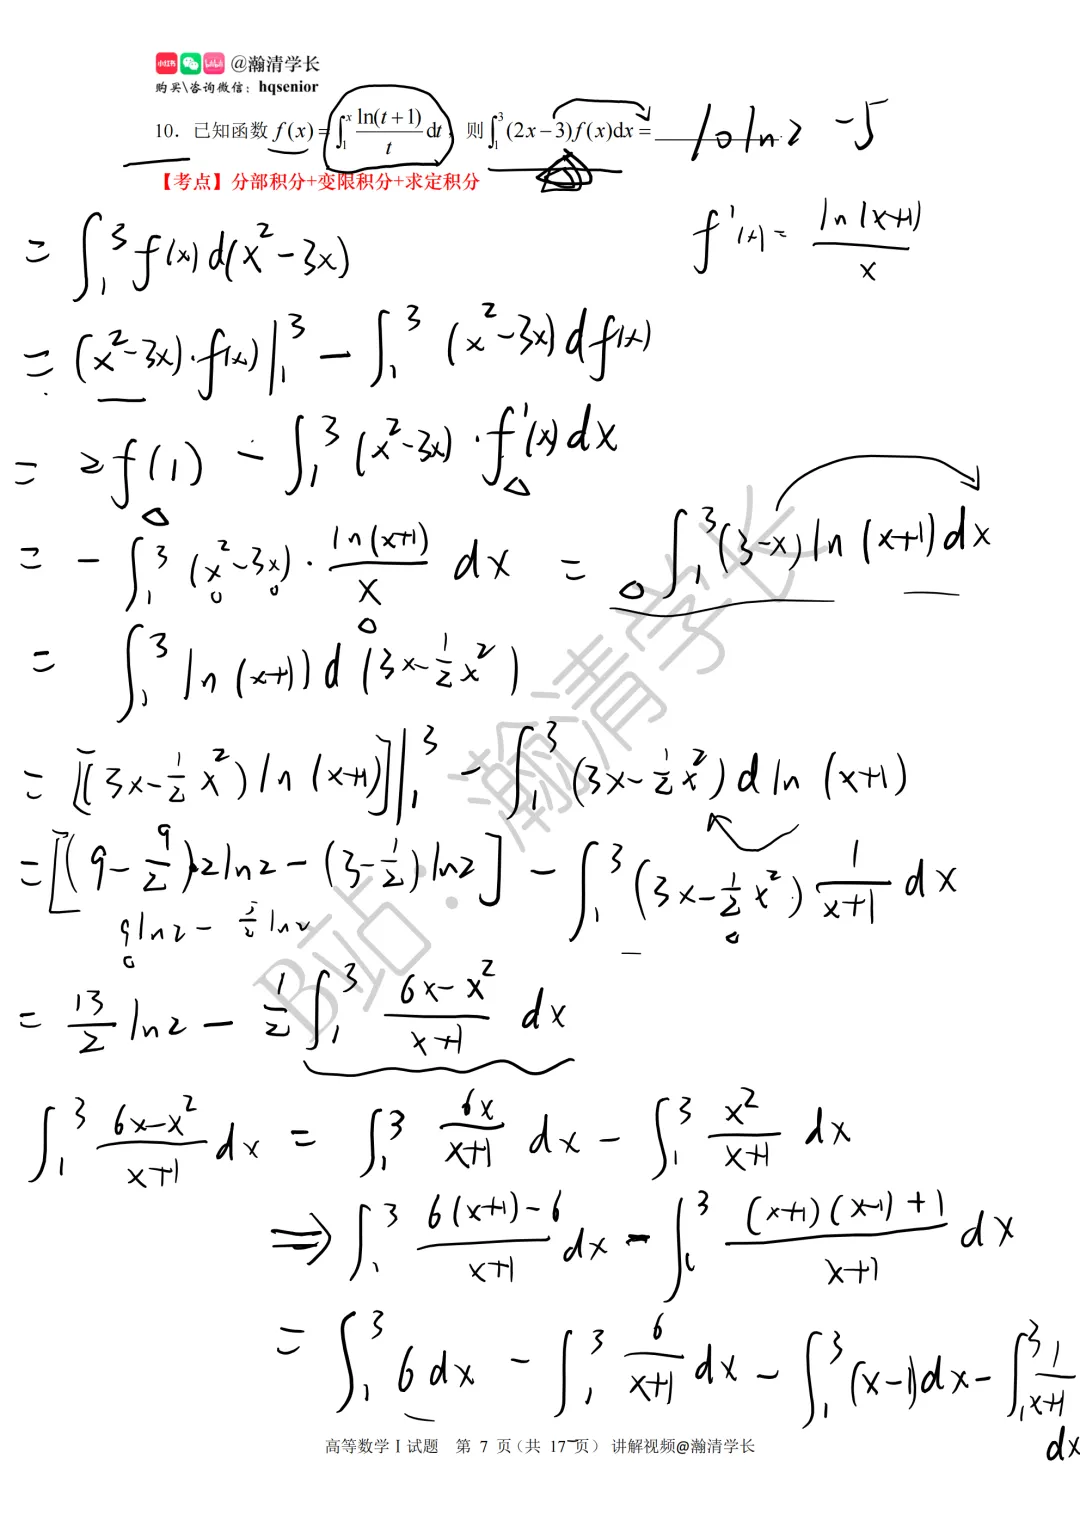 小红书 bilibili @瀚清学长
购买\咨询微信：hqsenior
10．已知函数 f(x)=∫₁ˣ ln(t+1)/t dt，则∫₁³(2x−3)f(x)dx=________ 10ln2 −5
【考点】分部积分+变限积分+求定积分
f'(x)= ln(x+1)/x
= ∫₁³ f(x)d(x²−3x)
= (x²−3x)·f(x)|₁³ − ∫₁³ (x²−3x)df(x)
= 2f(1) − ∫₁³(x²−3x)·f'(x)dx
= −∫₁³(x²−3x)· ln(x+1)/x dx = ∫₁³(3−x)ln(x+1)dx
= ∫₁³ ln(x+1)d(3x−½x²)
= [(3x−½x²)ln(x+1)]|₁³ − ∫₁³(3x−½x²)d ln(x+1)
= [(9−9/2)·2ln2−(3−½)ln2] − ∫₁³(3x−½x²) 1/(x+1) dx
9ln2 − 5/2 ln2
= 13/2 ln2 − ½∫₁³ (6x−x²)/(x+1) dx
∫₁³ (6x−x²)/(x+1) dx = ∫₁³ 6x/(x+1) dx − ∫₁³ x²/(x+1) dx
⇒ ∫₁³ (6(x+1)−6)/(x+1) dx − ∫₁³ ((x+1)(x−1)+1)/(x+1) dx
= ∫₁³ 6dx − ∫₁³ 6/(x+1) dx − ∫₁³(x−1)dx − ∫₁³ 1/(x+1) dx
高等数学Ⅰ试题 第 7 页（共 17 页） 讲解视频@瀚清学长
B站：瀚清学长